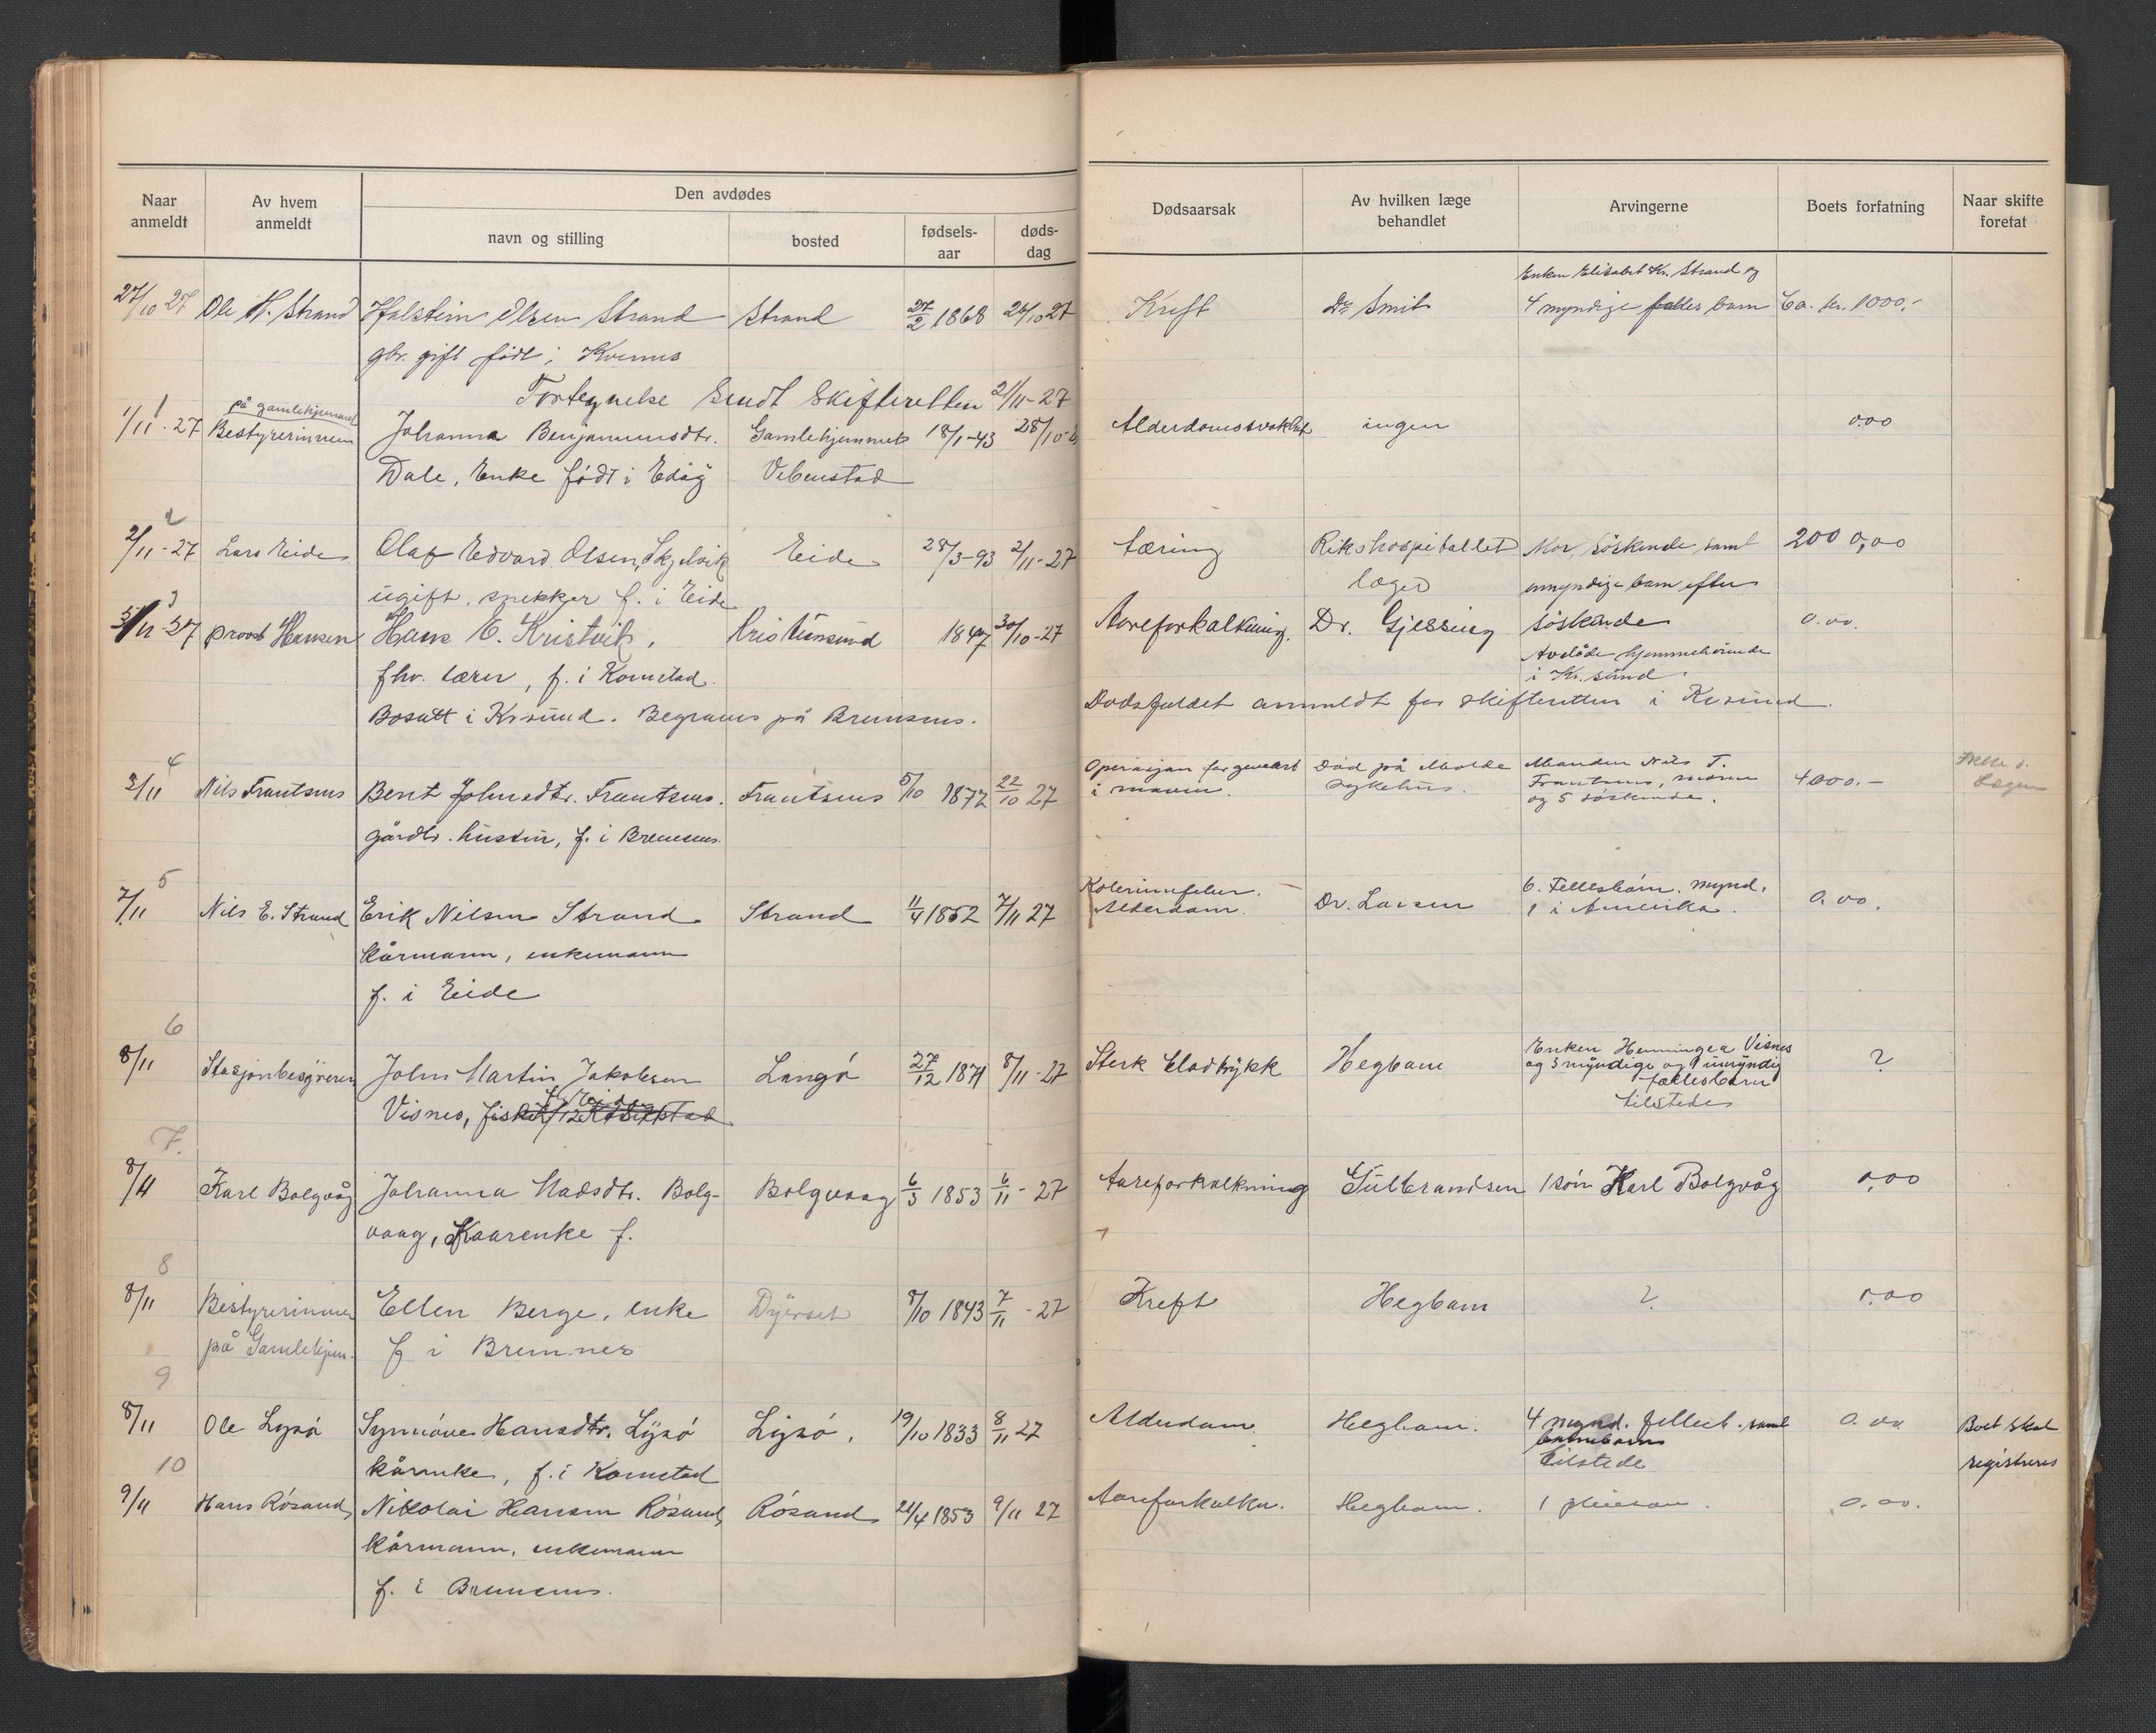 Naar anmeldt
Av hvem anmeldt
Den avdødes
navn og stilling
bosted
fødsels-aar
døds-dag
Dødsaarsak
Av hvilken læge behandlet
Arvingerne
Boets forfatning
Naar skifte foretat
Enken Elisabet Kr. Strand og
27/10 27 Ole H. Strand Halstein Olsen Strand Strand 27/2 1868 26/10 27 Kreft Dr Smit 4 myndige felles barn Ca. kr. 1000.-
gbr. gift født i Kvernes
Fortegnelse sendt Skifteretten 21/11-27
1
på gamlehjemmet
1/11-27 Bestyrerinnen Johanna Benjaminsdtr. Gamlehjemmet 18/1-43 28/10- Alderdomssvakhet ingen 0.00
Dale, Enke født i Edøy Vebenstad
2
2/11-27 Lars Eide Olaf Edvard Olsen, Skjelvik Eide 28/3-93 2/11-27 tæring Rikshospitallet Mor, söskende samt 200 0,00
ugift. snekker f. i Eide læger umyndige barn efter
3
5/11-27 provst Hansen Hans E. Kristvik, Kristiansund 1847 30/10-27 Aareforkalkning. Dr. Gjessing söskende 0.00.
Avdöde hjemmehörende
fhv. lærer, f. i Kornstad. i Kr. sund.
Bosatt i Krsund. Begraves på Bremsnes. Dödsfaldet anmeldt for skifteretten i Krsund.
4
3/11 Nils Frantsens Bent Johnsdtr. Frantsens. Frantsens 5/10 1872 22/10 27 Operasjon for gevekst i maven. Död på Molde sykehus. Manden Nils F. Frantsens, moren og 5 söskende. 4000.-
gårdbr. hustru, f. i Bremsnes.
5
7/11 Nils E. Strand Erik Nilsen Strand Strand 11/4 1852 7/11 27 Alderdom. Dr. Larsen 6. Fellesbarn. mynd. 1 i Amerika. 0.00.
kårmann, enkemann
f. i Eide
6
8/11 Stasjonbestyreren John Martin Jakobsen Langö 27/12 1871 8/11-27 Sterk blodtrykk Hegbom Enken Henningea Visnes og 3 myndige og 1 umyndig fællesbarn tilstede ?
Visnes, fisker
7.
8/11 Karl Bolgvåg Johanna Madsdtr. Bolg- Bolgvaag 6/5 1853 6/11-27 Aareforkalkning Gulbrandsen 1 sön Karl Bolgvåg 0,00
vaag, Kaarenke f.
8
8/11 Bestyrerinnen Ellen Berge, enke Dyrset 8/10 1843 7/11-27 Kreft Hegbom ? 0,00
på Gamlehjem. f i Bremnes
9
8/11 Ole Lysö Synnöve Hansdtr. Lysö Lysö. 19/10 1833 8/11 27 Alderdom Hegbom. 4 mynd. felleb. samt barnebarn tilstede 0.00 Boet skal registreres
kårenke, f. i Kornstad
10
9/11 Hans Rösand Nikolai Hansen Rösand Rösand 21/4 1853 9/11 27 Aareforkalkn. Hegbom. 1 pleiesön. 0.00.
kårmann, enkemann
f. i Bremsnes.